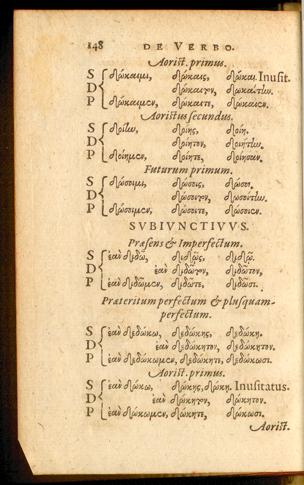 148 DE VERBO.
Aorist. primus.
S δώκαιμι, δώκαις, δώκαι. Inusit.
D δώκαιτον, δωκαίτην.
P δώκαιμεν, δώκαιτε, δώκαιεν.
Aoristus secundus.
S δοίην, δοίης, δοίη.
D δοίητον, δοιήτην.
P δοίημεν, δοίητε, δοίησαν.
Futurum primum.
S δώσοιμι, δώσοις, δώσοι.
D δώσοιτον, δωσοίτην.
P δώσοιμεν, δώσοιτε, δώσοιεν.
SVBIVNCTIVVS.
Præsens & Imperfectum.
S ἐὰν διδῶ, διδῷς, διδῷ.
D ἐὰν διδῶτον, διδῶτον.
P ἐὰν διδῶμεν, διδῶτε, διδῶσι.
Præteritum perfectum & plusquam-
perfectum.
S ἐὰν δεδώκω, δεδώκῃς, δεδώκῃ.
D ἐὰν δεδώκητον, δεδώκητον.
P ἐὰν δεδώκωμεν, δεδώκητε, δεδώκωσι.
Aorist. primus.
S ἐὰν δώκω, δώκῃς, δώκῃ. Inusitatus.
D ἐὰν δώκητον, δώκητον.
P ἐὰν δώκωμεν, δώκητε, δώκωσι.
Aorist.